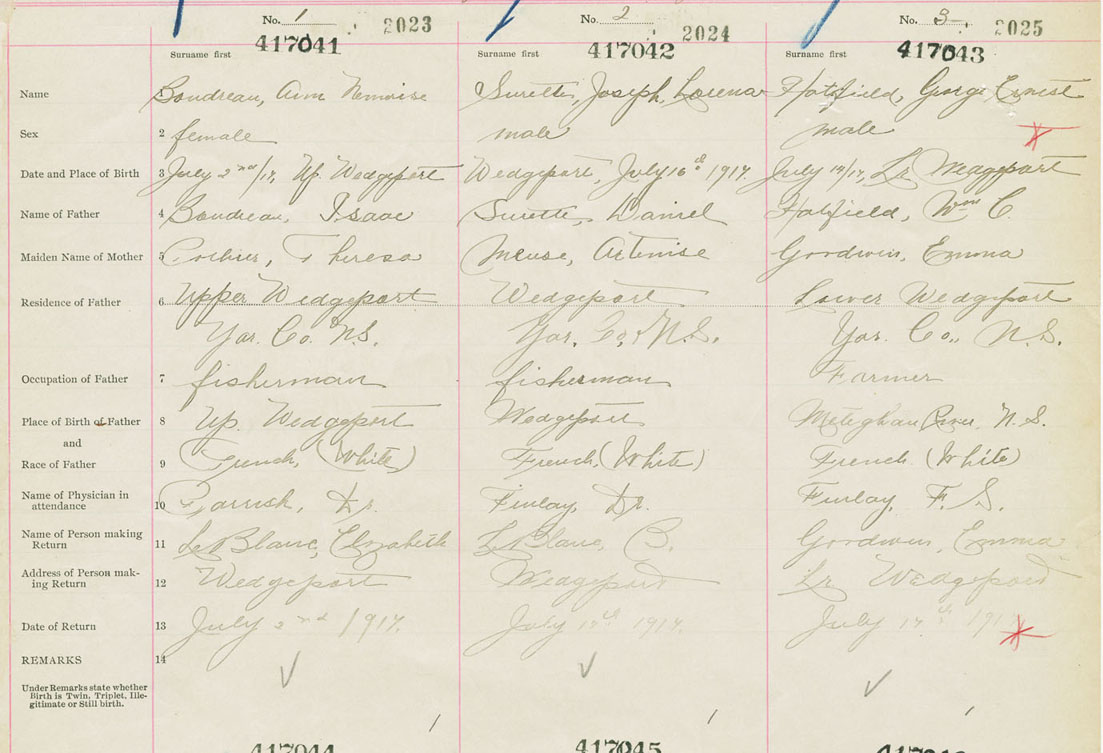 No. 1 2023 No. 2 2024 No. 3 2025
417041 417042 417043
Surname first Surname first Surname first
Name 1 Boudreau, Ann Surette, Joseph, Hatfield, George Ernest
Sex 2 female male male
Date and Place of Birth 3 July 2nd/17, Up. Wedgeport Wedgeport, July 16th 1917 July Lr Wedgeport
Name of Father 4 Boudreau, Isaac Surette, Daniel Hatfield, Wm C.
Maiden Name of Mother 5 Theresa Meuse, Artemise Goodwin, Emma
Residence of Father 6 Upper Wedgeport Wedgeport Lower Wedgeport
Yar. Co. N.S. Yar. Co. N.S. Yar. Co., N.S.
Occupation of Father 7 fisherman fisherman Farmer
Place of Birth of Father 8 Up. Wedgeport Wedgeport Meteghan River, N.S.
and
Race of Father 9 French, (White) French, (White) French (White)
Name of Physician in
attendance 10 Dr. Finlay, Dr. Finlay, F. S.
Name of Person making
Return 11 LeBlanc, Elizabeth LeBlanc, B. Goodwin, Emma
Address of Person mak-
ing Return 12 Wedgeport Wedgeport Lr Wedgeport
Date of Return 13 July 2nd 1917. July 1917. July
REMARKS 14
Under Remarks state whether
Birth is Twin, Triplet, Ille-
gitimate or Still birth.
1 1 1
417044 417045